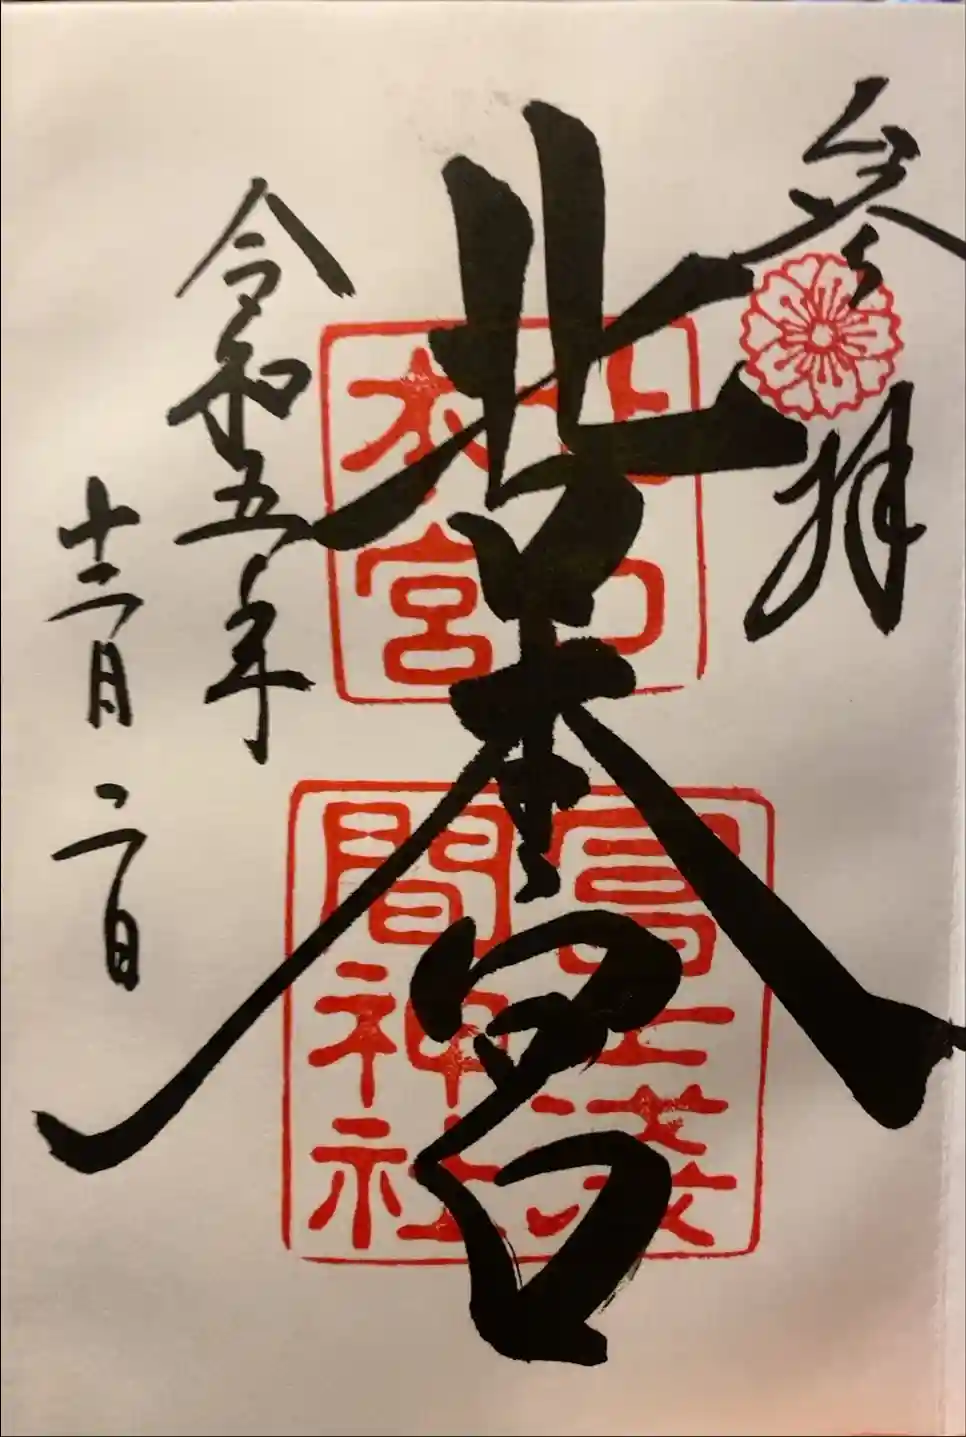 参拝
北口本宮
令和五年
十二月二日
北口
本宮
冨士淺
間神社